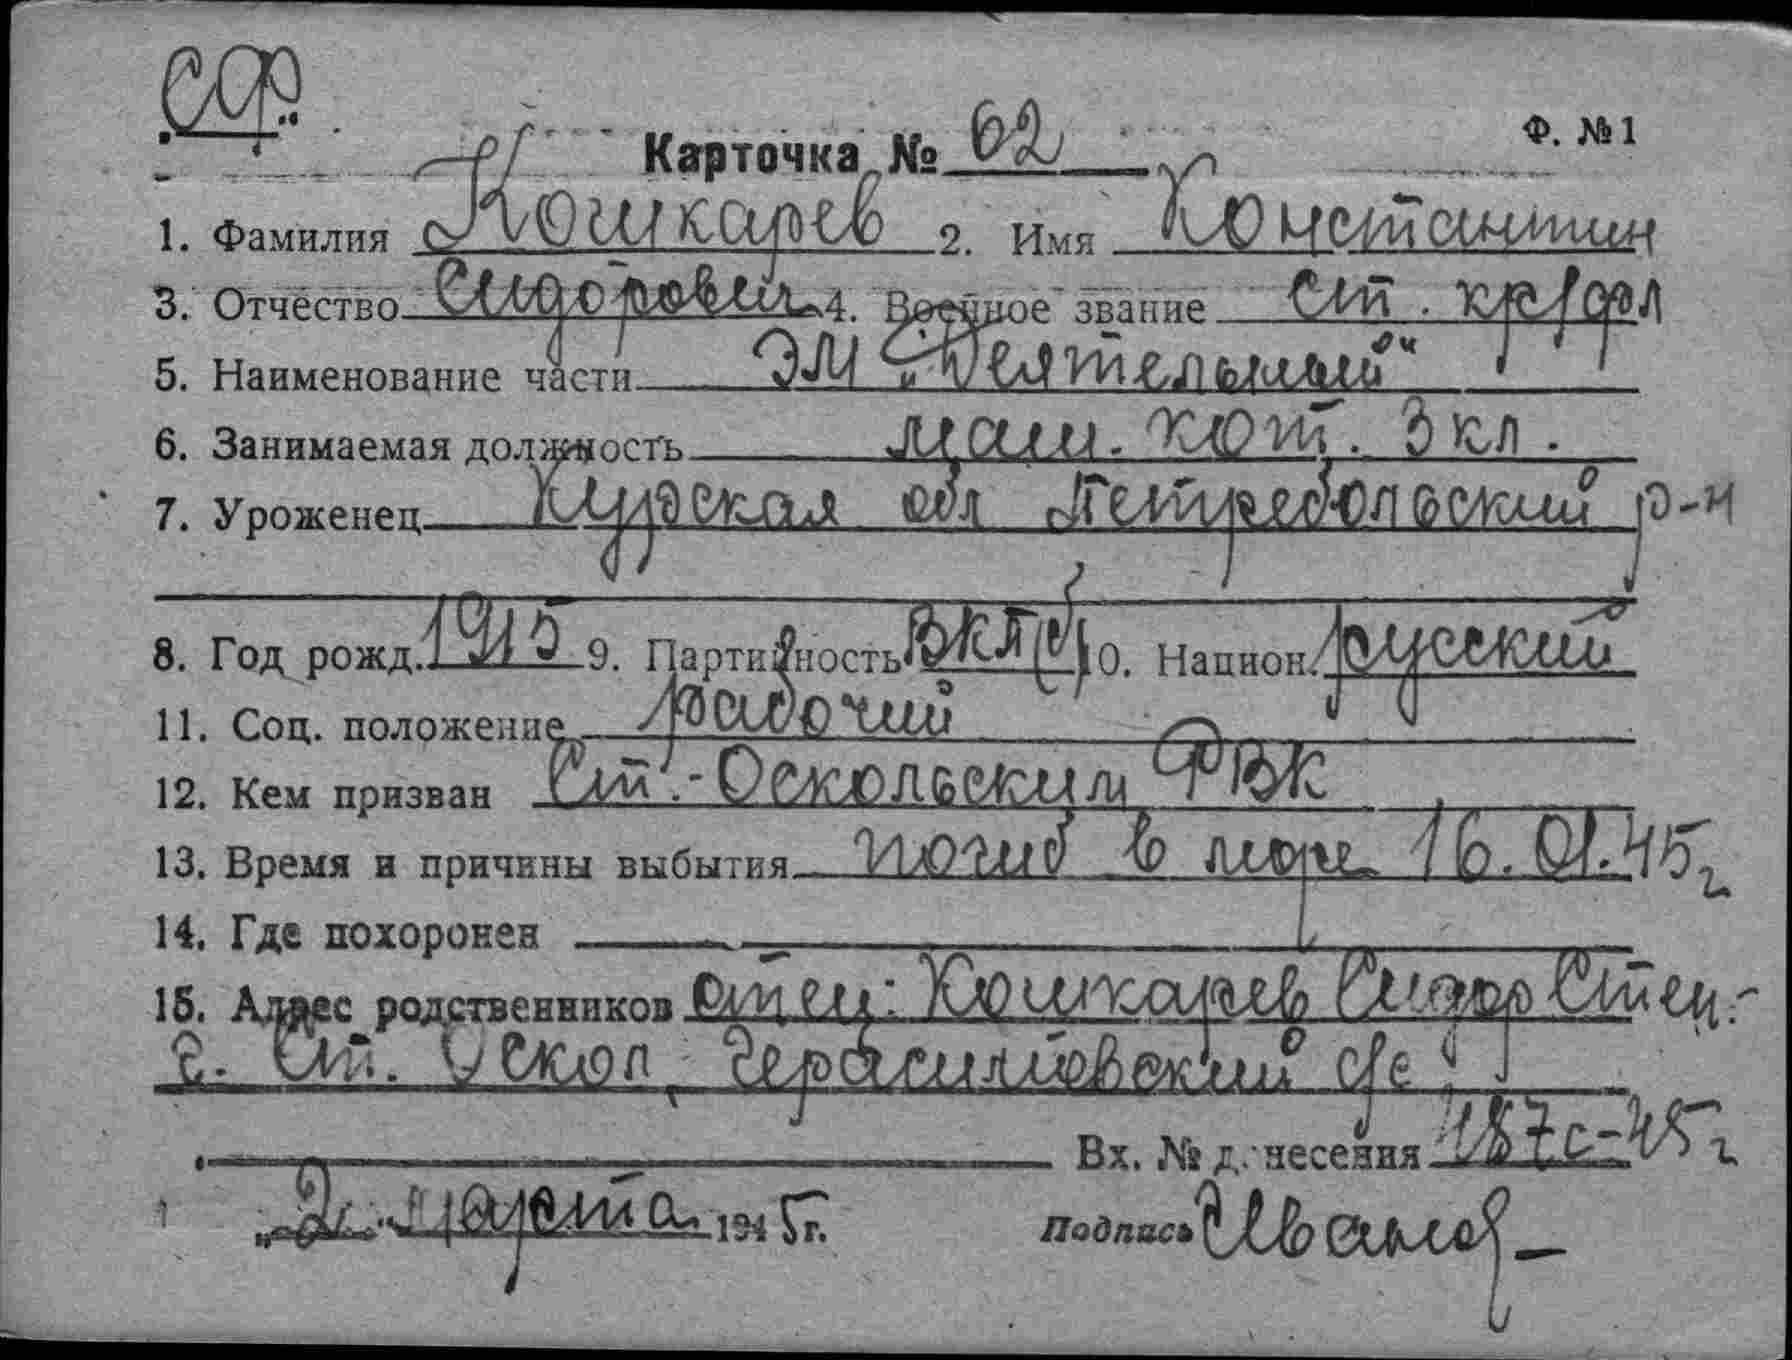 ССФ.
Карточка № 62 Ф. №1
1. Фамилия Кошкарев 2. Имя Константин
3. Отчество Сидорович 4. Военное звание ст. кр/фл
5. Наименование части ЭМ „Деятельный“
6. Занимаемая должность маш. кот. 3 кл.
7. Уроженец Курская обл Петребольский р-н
8. Год рожд. 1915 9. Партийность ВКП(б) 10. Национ. русский
11. Соц. положение рабочий
12. Кем призван Ст.-Оскольским РВК
13. Время и причины выбытия погиб в море 16.01.45г
14. Где похоронен
15. Адрес родственников отец: Кошкарев Сидор Степ.-
г. Ст. Оскол, Герасимовский с/с
Вх. № донесения 187с-45г
„2“ марта 1945г.
Подпись